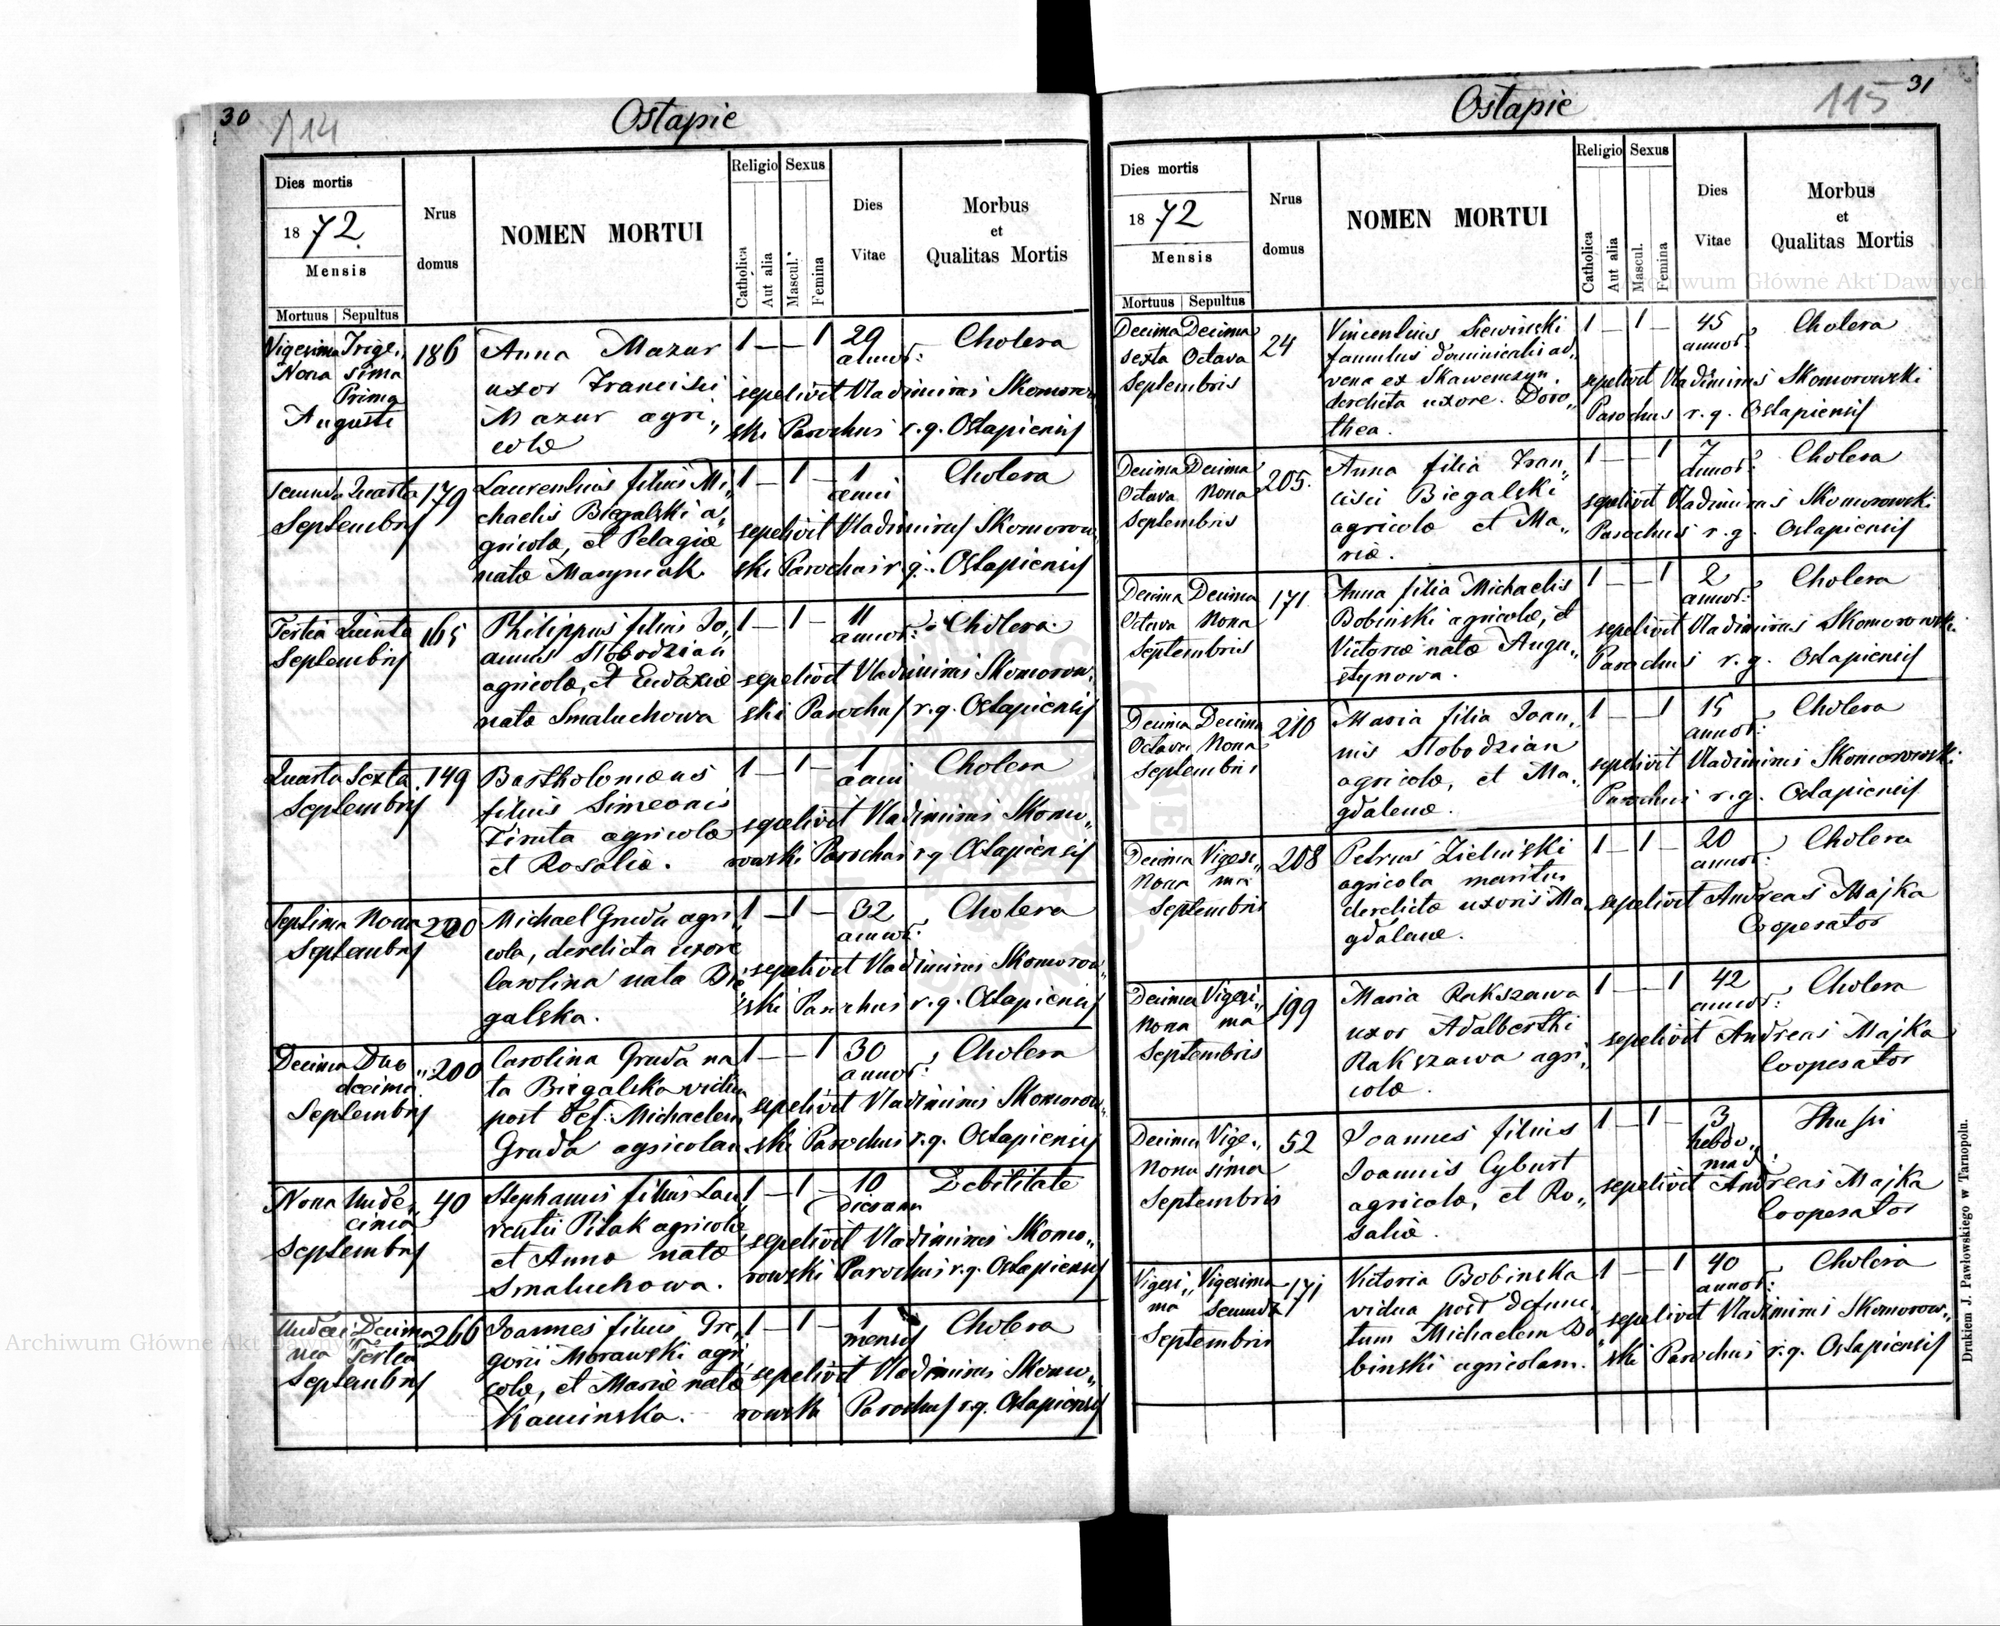 30
114
Ostapie
Dies mortis
1872.
Mensis
Mortuus | Sepultus
Nrus
domus
NOMEN MORTUI
Religio
Catholica
Aut alia
Sexus
Mascul.
Femina
Dies
Vitae
Morbus
et
Qualitas Mortis
Vigesima Trige,,
Nona sima
Prima
Augusti
186
Anna Mazur
uxor Francisci
Mazur agri,,
colæ
1 — — 1
29
annor:
Cholera
sepelivit Vladimirus Skomorow
ski Parochus r.g. Ostapiensis
secunda Quarta
Septembris
179
Laurentius filius Mi,,
chaelis Biegalski a,,
gricolæ, et Pelagiæ
natæ Maryniak
1 — 1 —
1
anni
Cholera
sepelivit Vladimirus Skomorow
ski Parochus r.g. Ostapiensis
Tertia Quinta
Septembris
165
Philippus filius Jo,,
annis Slobodzian
agricolæ, et Eudoxiæ
natæ Smaluchowa
1 — 1 —
11
annor:
Cholera
sepelivit Vladimirus Skomorow,,
ski Parochus r.g. Ostapiensis
Quarta Sexta
Septembris
149
Bartholomæus
filius Simeonis
agricolæ
et Rosaliæ.
1 — 1 —
1
anni
Cholera
sepelivit Vladimirus Skomo,,
rowski Parochus r.g Ostapiensis
Septima Nona
Septembris
200
Michael Gruda agri,,
cola, derelicta uxore
Carolina nata Bie
galska.
1 — 1 —
32
annor:
Cholera
sepelivit Vladimirus Skomorow,,
ski Parochus r.g. Ostapiensis
Decima Duo,,
decima
Septembris
200
Carolina Gruda na
ta Biegalska vidua
post def: Michaelem
Gruda agricolam
1 — — 1
30
annor:
Cholera
sepelivit Vladimirus Skomorow,,
ski Parochus r.g. Ostapiensis
Nona Unde,,
cima
Septembris
40
Stephanus filius Lau,,
rentii Pitak agricolæ
et Annæ natæ
Smaluchowa.
1 — 1 —
10
dierum
Debilitate
sepelivit Vladimirus Skomo,,
rowski Parochus r.g. Ostapiensis
Undeci Decima
ma Tertia
Septembris
266
Joannes filius Gre,,
gorii Morawski agri
colæ, et Mariæ natæ
Kaminska.
1 — 1 —
1
mensis
Cholera
sepelivit Vladimirus Skomo,,
rowski Parochus r.g. Ostapiensis
31
115
Ostapie
Dies mortis
1872
Mensis
Mortuus | Sepultus
Nrus
domus
NOMEN MORTUI
Religio
Catholica
Aut alia
Sexus
Mascul.
Femina
Dies
Vitae
Morbus
et
Qualitas Mortis
Decima Decima
sexta Octava
Septembris
24
Vincentius Siewinski
famulus dominicalis ad,,
vena ex Skawenczyn.
derelicta uxore. Doro,,
thea.
1 — 1 —
45
annor:
Cholera
sepelivit Vladimirus Skomorowski
Parochus r.g. Ostapiensis
Decima Decima
Octava Nona
Septembris
205.
Anna filia Fran,,
cisci Biegalski
agricolæ et Ma,,
riæ.
1 — — 1
7
annor:
Cholera
sepelivit Vladimirus Skomorowski
Parochus r.g. Ostapiensis
Decima Decima
Octava Nona
Septembris
171
Anna filia Michaelis
Bobinski agricolæ, et
Victoriæ natæ Augu,,
stynowa.
1 — — 1
2
annor:
Cholera
sepelivit Vladimirus Skomorowski
Parochus r.g. Ostapiensis
Decima Decima
Octava Nona
Septembris
210
Maria filia Joan,,
nis Slobodzian
agricolæ, et Ma,,
gdalenæ.
1 — — 1
15
annor:
Cholera
sepelivit Vladimirus Skomorowski
Parochus r.g. Ostapiensis
Decima Vigesi,,
Nona ma
Septembris
208
Petrus Zielinski
agricola maritus
derelictæ uxoris Ma,,
gdalenæ.
1 — 1 —
20
annor:
Cholera
sepelivit Andreas Majka
Cooperator
Decima Vigesi,,
Nona ma
Septembris
199
Maria Rakszawa
uxor Adalberthi
Rakszawa agri,,
colæ.
1 — — 1
42
annor:
Cholera
sepelivit Andreas Majka
Cooperator
Decima Vige,,
Nona sima
Septembris
52
Joannes filius
Joannis Cyburt
agricolæ, et Ro,,
saliæ.
1 — 1 —
3
hebdo,,
mad:
Thussi
sepelivit Andreas Majka
Cooperator
Vigesi,, Vigesima
ma Secunda
Septembris
171
Victoria Bobinska
vidua post defunc,,
tum Michaelem Bo
binski agricolam.
1 — — 1
40
annor:
Cholera
sepelivit Vladimirus Skomorow,,
ski Parochus r.g. Ostapiensis
Drukiem J. Pawłowskiego w Tarnopolu.
Archiwum Główne Akt Dawnych
Archiwum Główne Akt Dawnych